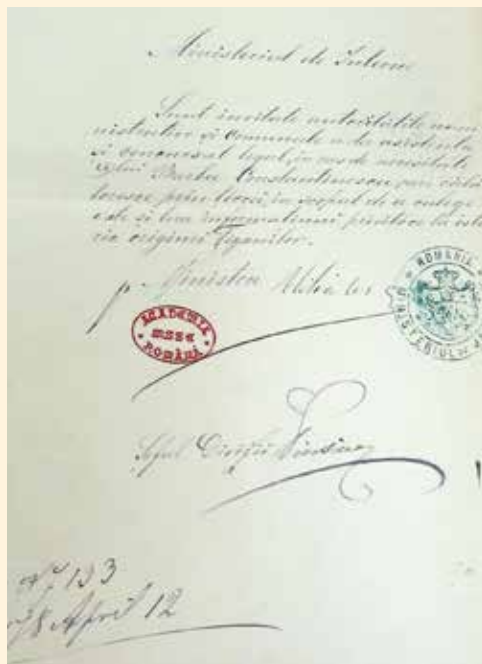 Ministerul de Interne
Sunt invitate autoritățile
nistrative și comunale a da asistența
și concursul legal, în cas de necesitate
Barbu Constantinescu care călă
toresce prin țară în scopul de a culege
și lua informațiuni privitore la isto
ria originei țiganilor.
p. Ministru
ACADEMIA
MSSE
ROMÂNĂ
ROMANIA
MINISTERIUL
Șeful Diviziei
No 133
78 April 12